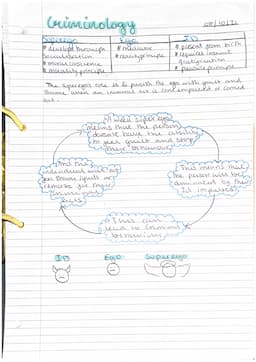 Criminology
Superego
Ego
ID
* develops through
socialisation
* moral conscience
* morality principle
* mediator
* reality principle
* present from birth
* requires instant
gratification
* pleasure principle
The Superego's role is to punish the ego with guilt and
shame when an immoral act is contemplated or carried
out.
A weak superego
means that the person
doesn't have the ability
to feel guilt and stop
their behaviour
This means that
the person will be
dominated by their
ID impulses
This can
lead to criminal
behaviour
And the
individual will not
feel shame/guilt or
remorse for their
criminal
acts
ID
Ego
Superego